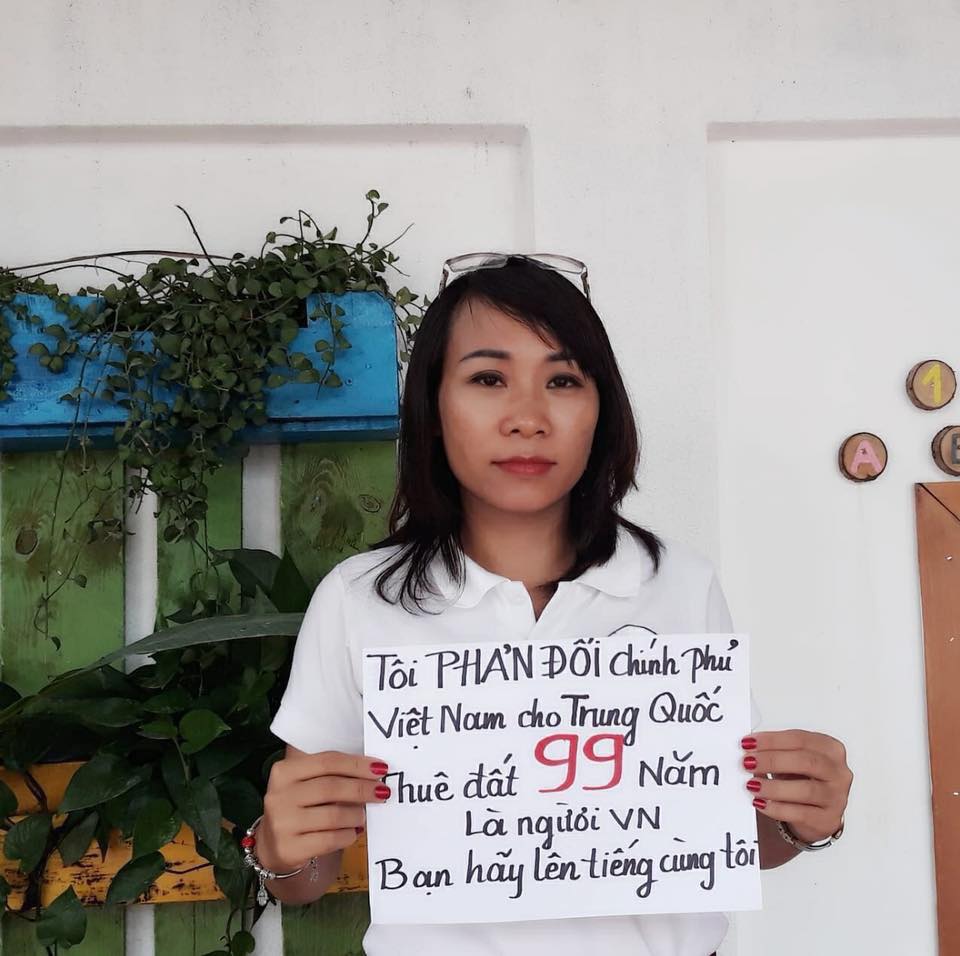 Tôi PHẢN ĐỐI chính phủ
Việt Nam cho Trung Quốc
Thuê đất 99 Năm
Là người VN
Bạn hãy lên tiếng cùng tôi
1
A